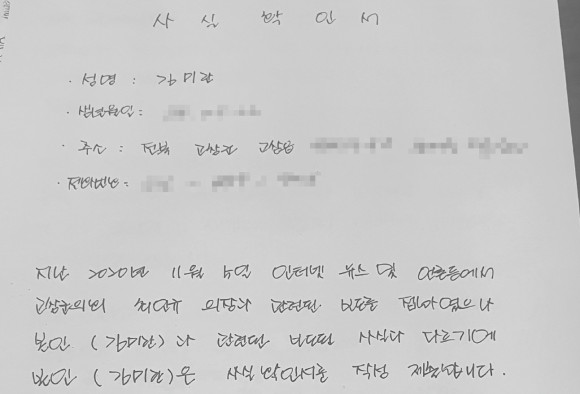 사 실 확 인 서
· 성명 : 김미란
· 생년월일 :
· 주소 : 전북 고창군 고창읍
· 전화번호 :
지난 2020년 11월 5일 인터넷 뉴스 및 언론등에서
고창군의회 최인규 의장과 관련된 보도를 접하였으나
본인 (김미란)과 관련된 보도된 사실과 다르기에
본인 (김미란)은 사실확인서를 작성 제출합니다.